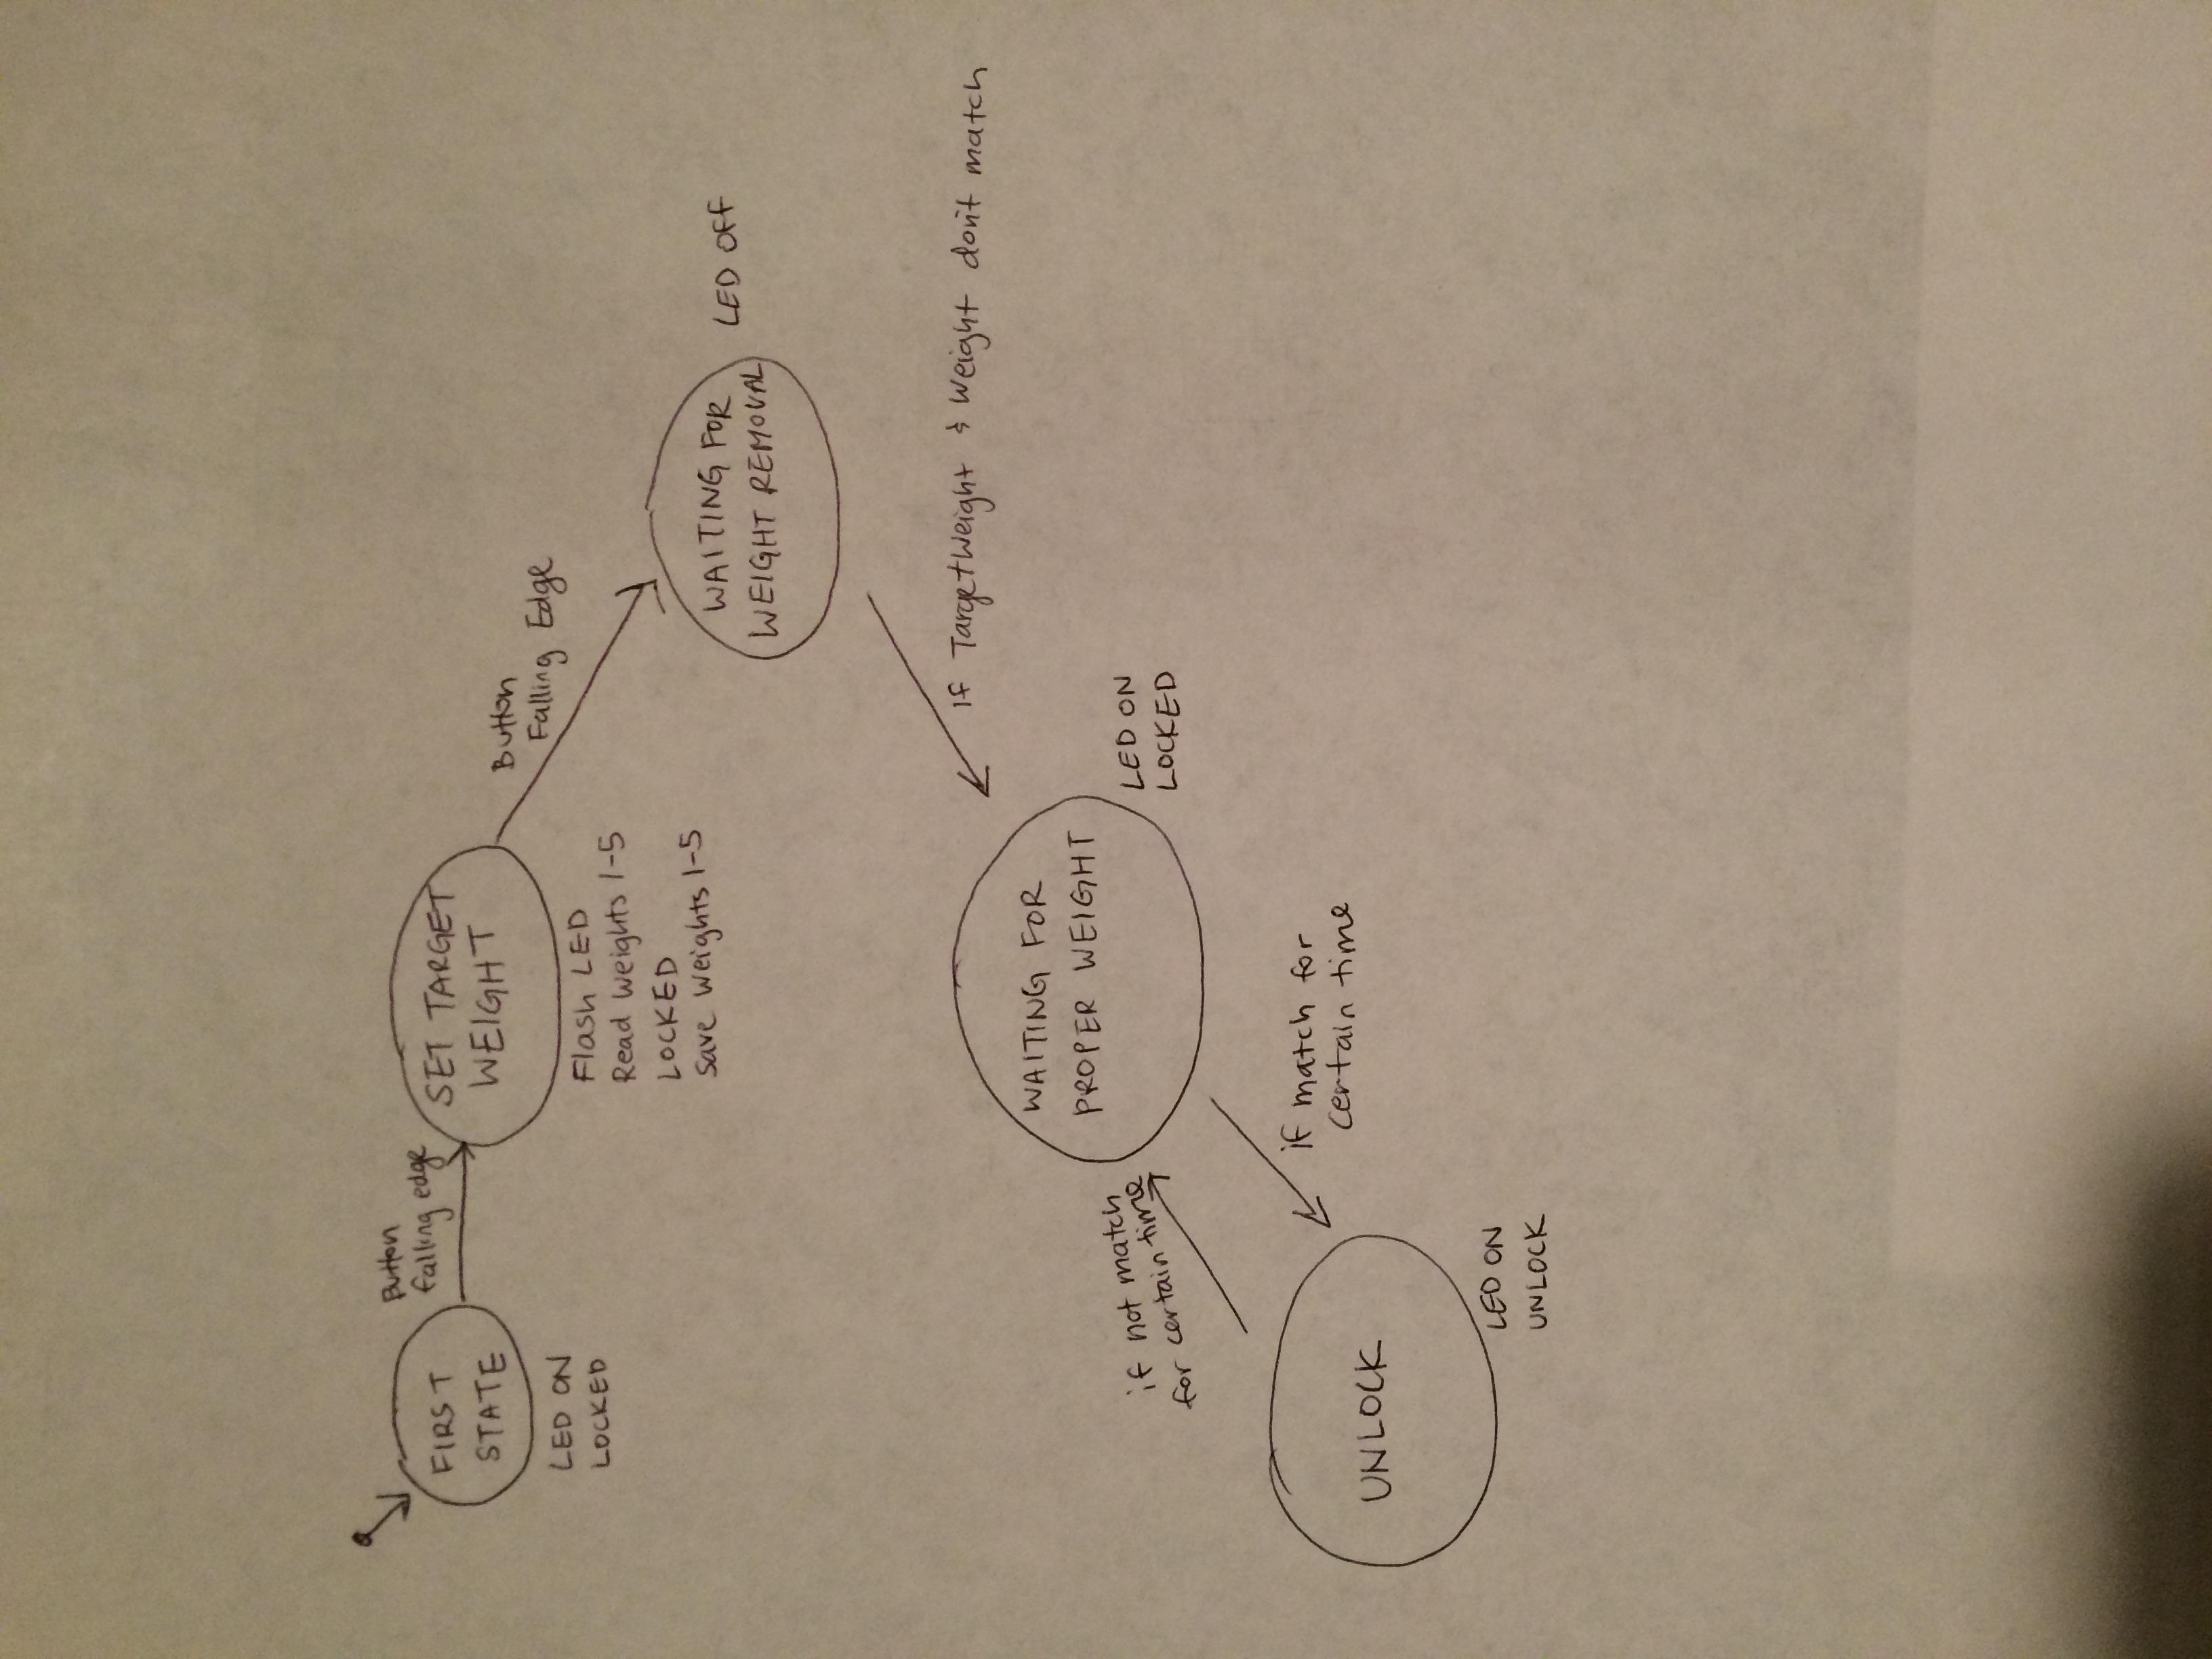 FIRST
STATE
LED ON
LOCKED
Button
falling edge
SET TARGET
WEIGHT
Flash LED
Read weights 1-5
LOCKED
Save weights 1-5
Button
Falling Edge
WAITING FOR
WEIGHT REMOVAL
LED OFF
If TargetWeight & Weight don't match
WAITING FOR
PROPER WEIGHT
LED ON
LOCKED
if not match
for certain time
if match for
certain time
UNLOCK
LED ON
UNLOCK